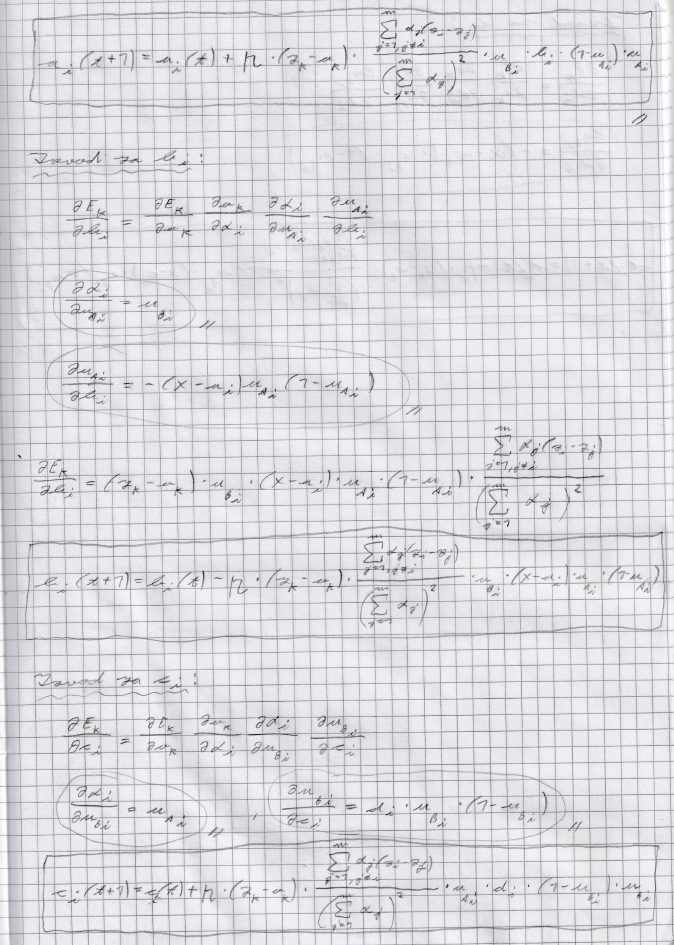 a_i(t+1) = a_i(t) + η · (y_k - o_k) · \frac{\sum_{j=1, j≠i}^{m} α_j(z_i - z_j)}{(\sum_{j=1}^{m} α_j)^2} · μ_{B_i} · b_i · (1-μ_{A_i}) · μ_{A_i}
Izvod za b_i:
\frac{∂E_k}{∂b_i} = \frac{∂E_k}{∂o_k} \frac{∂o_k}{∂α_i} \frac{∂α_i}{∂μ_{A_i}} \frac{∂μ_{A_i}}{∂b_i}
\frac{∂α_i}{∂μ_{A_i}} = μ_{B_i} //
\frac{∂μ_{A_i}}{∂b_i} = -(x - a_i)μ_{A_i}(1-μ_{A_i}) //
\frac{∂E_k}{∂b_i} = (y_k - o_k) · μ_{B_i} · (x - a_i) · μ_{A_i} · (1-μ_{A_i}) · \frac{\sum_{j=1, j≠i}^{m} α_j(z_i - z_j)}{(\sum_{j=1}^{m} α_j)^2}
b_i(t+1) = b_i(t) - η · (y_k - o_k) · \frac{\sum_{j=1, j≠i}^{m} α_j(z_i - z_j)}{(\sum_{j=1}^{m} α_j)^2} · μ_{B_i} · (x - a_i) · μ_{A_i} · (1-μ_{A_i})
Izvod za c_i:
\frac{∂E_k}{∂c_i} = \frac{∂E_k}{∂o_k} \frac{∂o_k}{∂α_i} \frac{∂α_i}{∂μ_{B_i}} \frac{∂μ_{B_i}}{∂c_i}
\frac{∂α_i}{∂μ_{B_i}} = μ_{A_i} // , \frac{∂μ_{B_i}}{∂c_i} = d_i · μ_{B_i} · (1-μ_{B_i}) //
c_i(t+1) = c_i(t) + η · (y_k - o_k) · \frac{\sum_{j=1, j≠i}^{m} α_j(z_i - z_j)}{(\sum_{j=1}^{m} α_j)^2} · μ_{A_i} · d_i · (1-μ_{B_i}) · μ_{B_i}